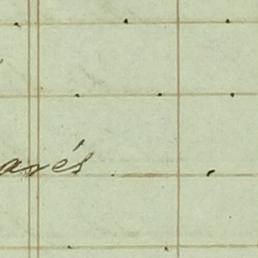 avés